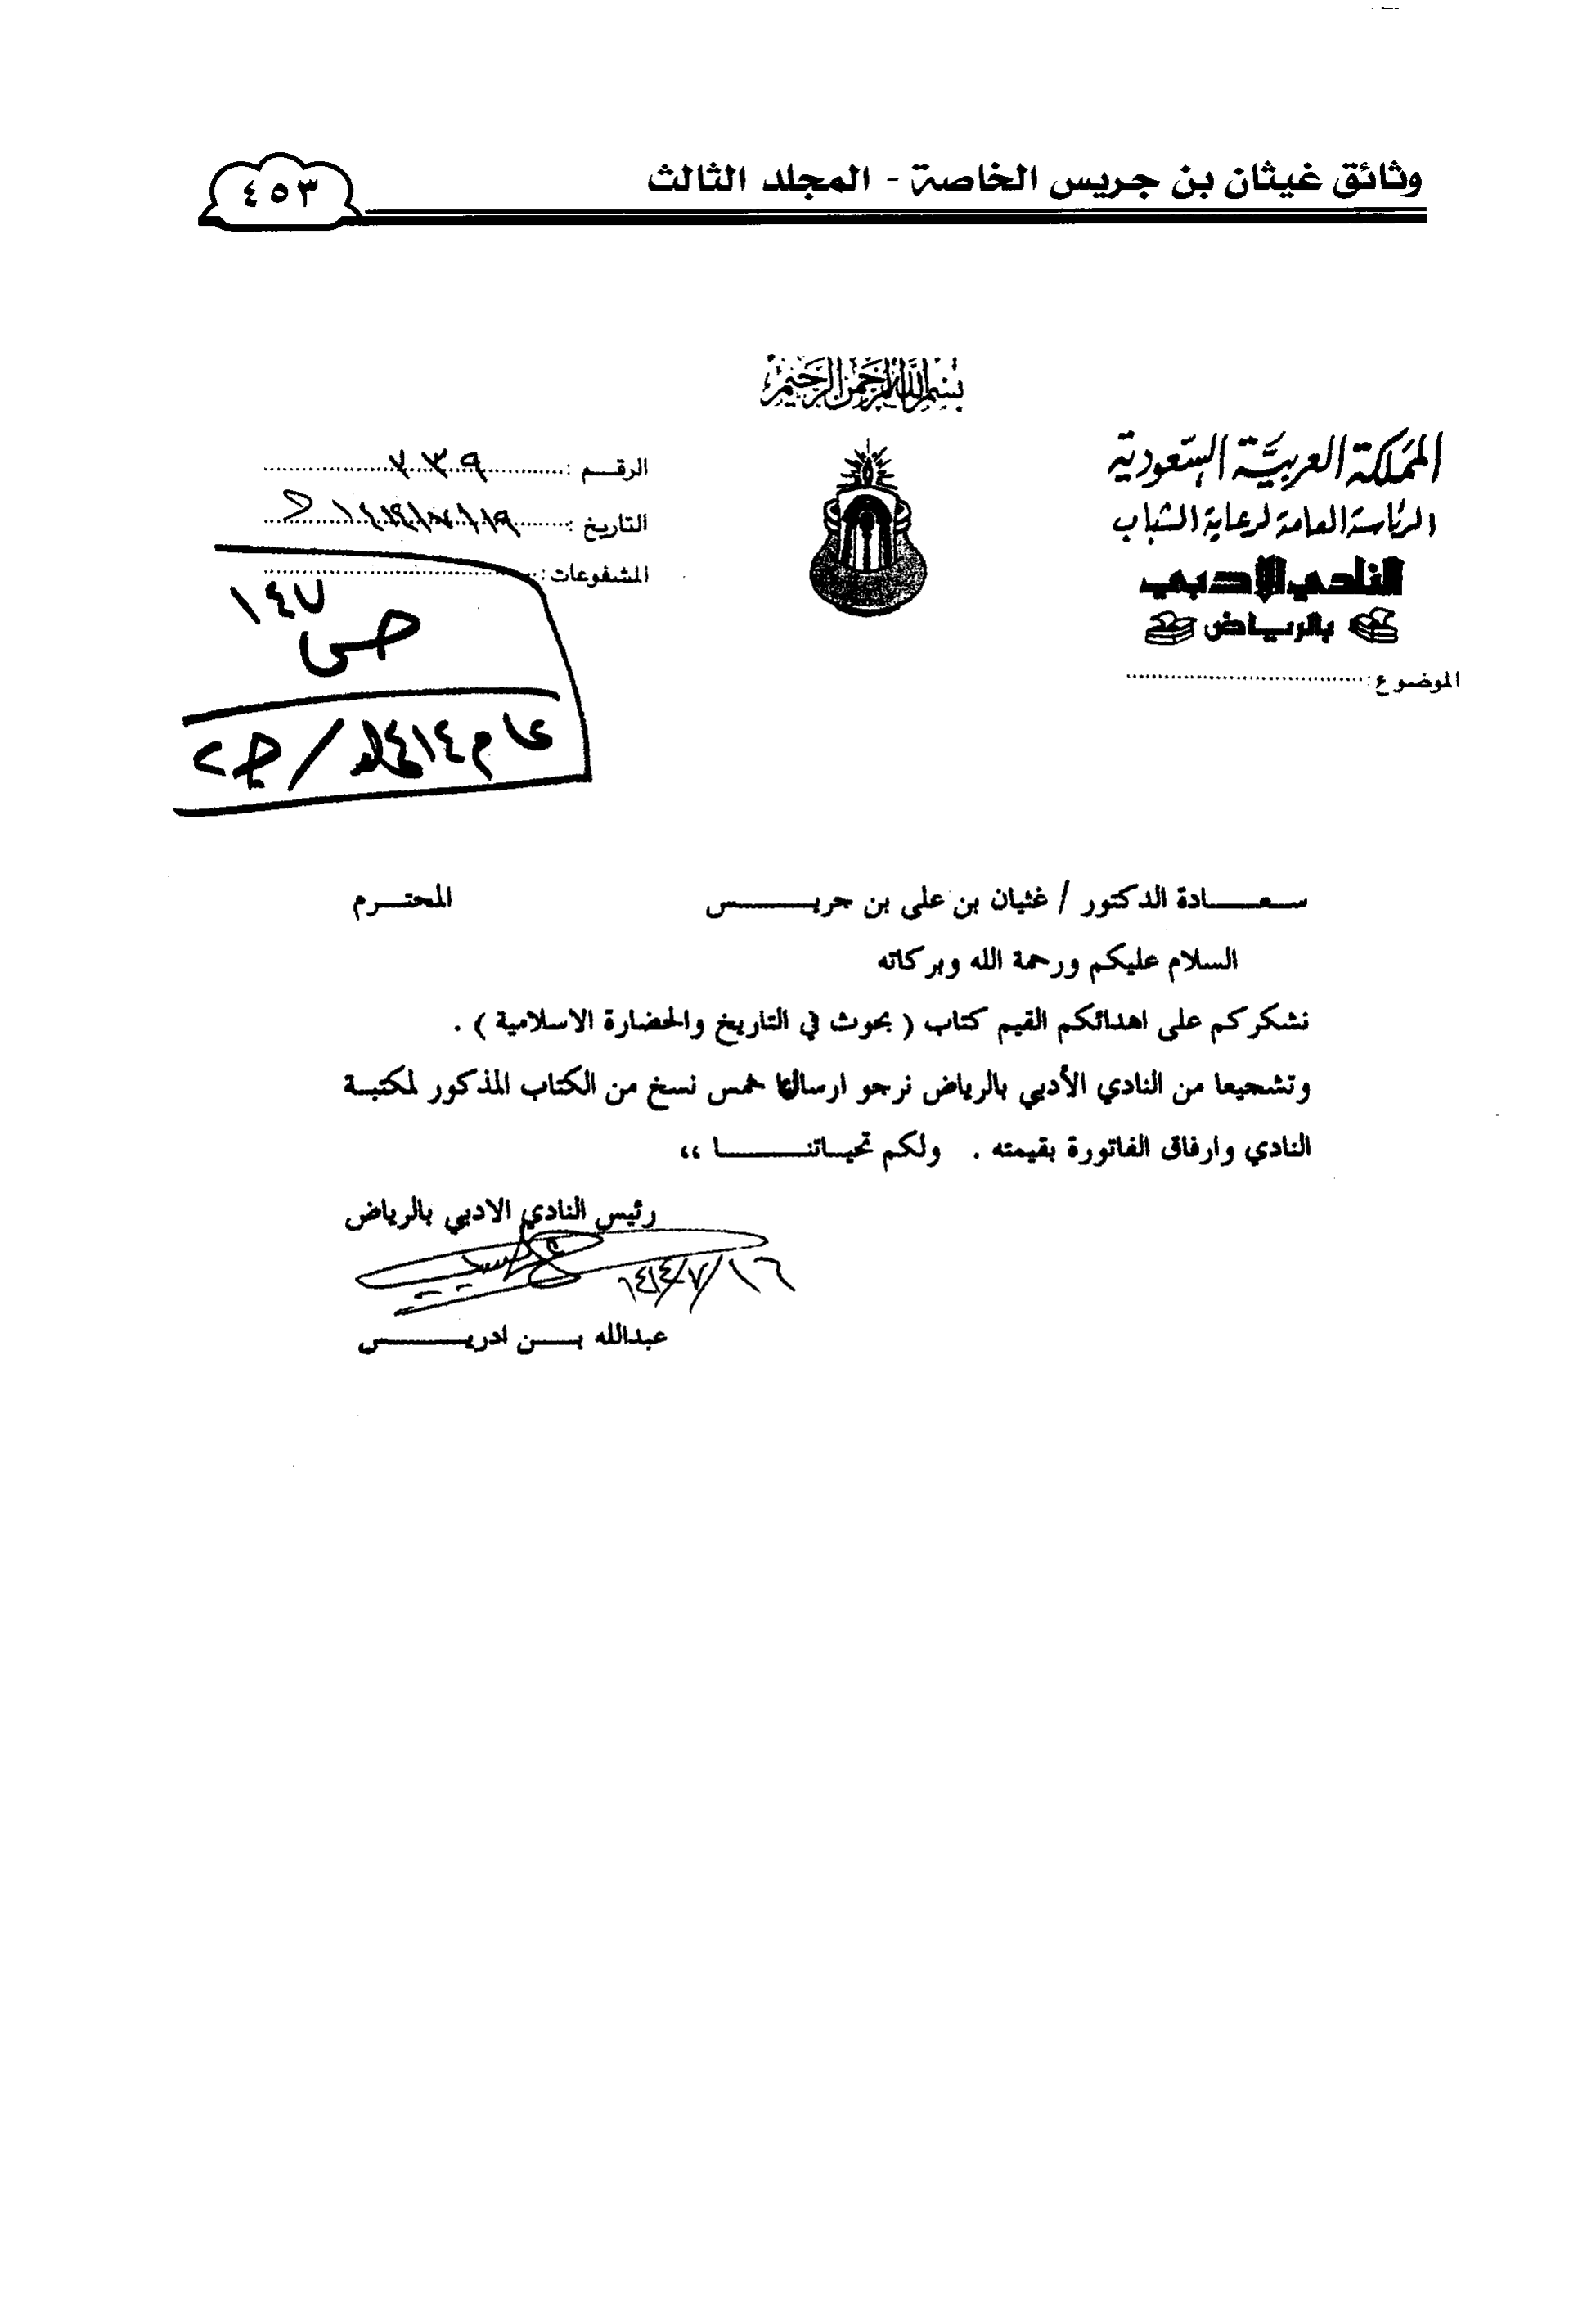 وثائق غيثان بن جريس الخاصة - المجلد الثالث
٤٥٣
بسم الله الرحمن الرحيم
المملكة العربية السعودية
الرئاسة العامة لرعاية الشباب
النادي الأدبي
بالرياض
الموضوع :
الرقـــم : ٧٣٩
التاريخ : ١٩/٧/١٤١٤
المشفوعات :
١٤٧
عام ١٤١٤
سعـــادة الدكتور / غثيان بن على بن جريــــــس المحتــرم
السلام عليكم ورحمة الله وبركاته
نشكركم على اهدائكم القيم كتاب ( بحوث في التاريخ والحضارة الاسلامية ) .
وتشجيعا من النادي الأدبي بالرياض نرجو ارسال خمس نسخ من الكتاب المذكور لمكتبـة
النادي وارفاق الفاتورة بقيمته . ولكم تحياتنــــــا ،،
رئيس النادي الادبي بالرياض
١٦/٧/١٤١٤
عبدالله بـــن ادريــــــس